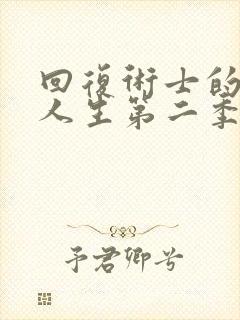 回復術士的
人生第二季
予君卿兮